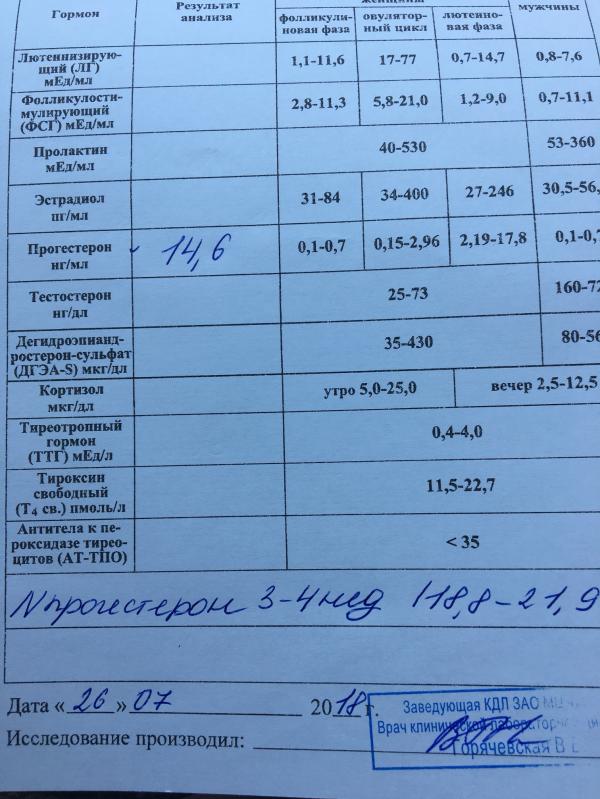 Гормон
Результат
анализа
женщины
фолликули-
новая фаза
овулятор-
ный цикл
лютеино-
вая фаза
мужчины
Лютеинизирую-
щий (ЛГ)
мЕд/мл
1,1-11,6
17-77
0,7-14,7
0,8-7,6
Фолликулости-
мулирующий
(ФСГ) мЕд/мл
2,8-11,3
5,8-21,0
1,2-9,0
0,7-11,1
Пролактин
мЕд/мл
40-530
53-360
Эстрадиол
пг/мл
31-84
34-400
27-246
30,5-56,
Прогестерон
нг/мл
14,6
0,1-0,7
0,15-2,96
2,19-17,8
0,1-0,
Тестостерон
нг/дл
25-73
160-72
Дегидроэпианд-
ростерон-сульфат
(ДГЭА-S) мкг/дл
35-430
80-56
Кортизол
мкг/дл
утро 5,0-25,0
вечер 2,5-12,5
Тиреотропный
гормон
(ТТГ) мЕд/л
0,4-4,0
Тироксин
свободный
(Т4 св.) пмоль/л
11,5-22,7
Антитела к пе-
роксидазе тирео-
цитов (АТ-ТПО)
< 35
N прогестерон 3-4 нед 118,8-21,9
Дата « 26 » 07 2018 г.
Заведующая КДЛ ЗАО МЦ
Врач клинической лаборатор
Горячевская В
Исследование производил: